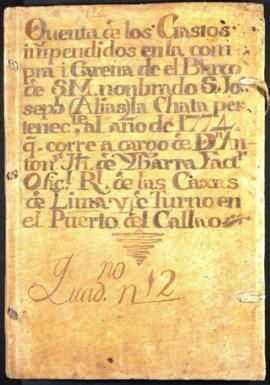 Quenta de los Gastos
impendidos en la com
pra i Carena de el Barco
de S.M. nonbrado S. Jo
seph (Alias) la Chata per
tenec.te al año de 1774
q. corre a cargo de Dn An
ton. Jh. de Ybarra Factr
Ofic.l Rl. de las Caxas
de Lima y de Turno en
el Puerto del Callao
Quad.no nº 2